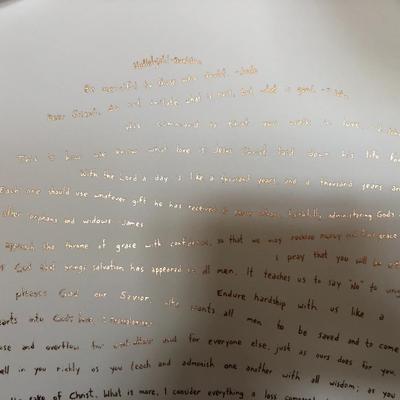 Hallelujah! -Revelation
Be merciful to those who doubt. -Jude
Dear friend, do not imitate what is evil, but what is good. -3 John
his command is that you walk in love. -2 John
This is how we know what love is Jesus Christ laid down his life for
With the Lord a day is like a thousand years, and a thousand years are
Each one should use whatever gift he has received to serve others, faithfully administering God's
after orphans and widows -James
approach the throne of grace with confidence, so that we may receive mercy and find grace
i pray that you will be
of God that brings salvation has appeared to all men. It teaches us to say "No" to
pleases God our Savior, who wants all men to be saved and to come
Endure hardship with us like a
hearts into God's love. -2 Thessalonians
increase and overflow for each other and for everyone else, just as ours does for you.
dwell in you richly as you teach and admonish one another with all wisdom; as you
the sake of Christ. What is more, I consider everything a loss compared